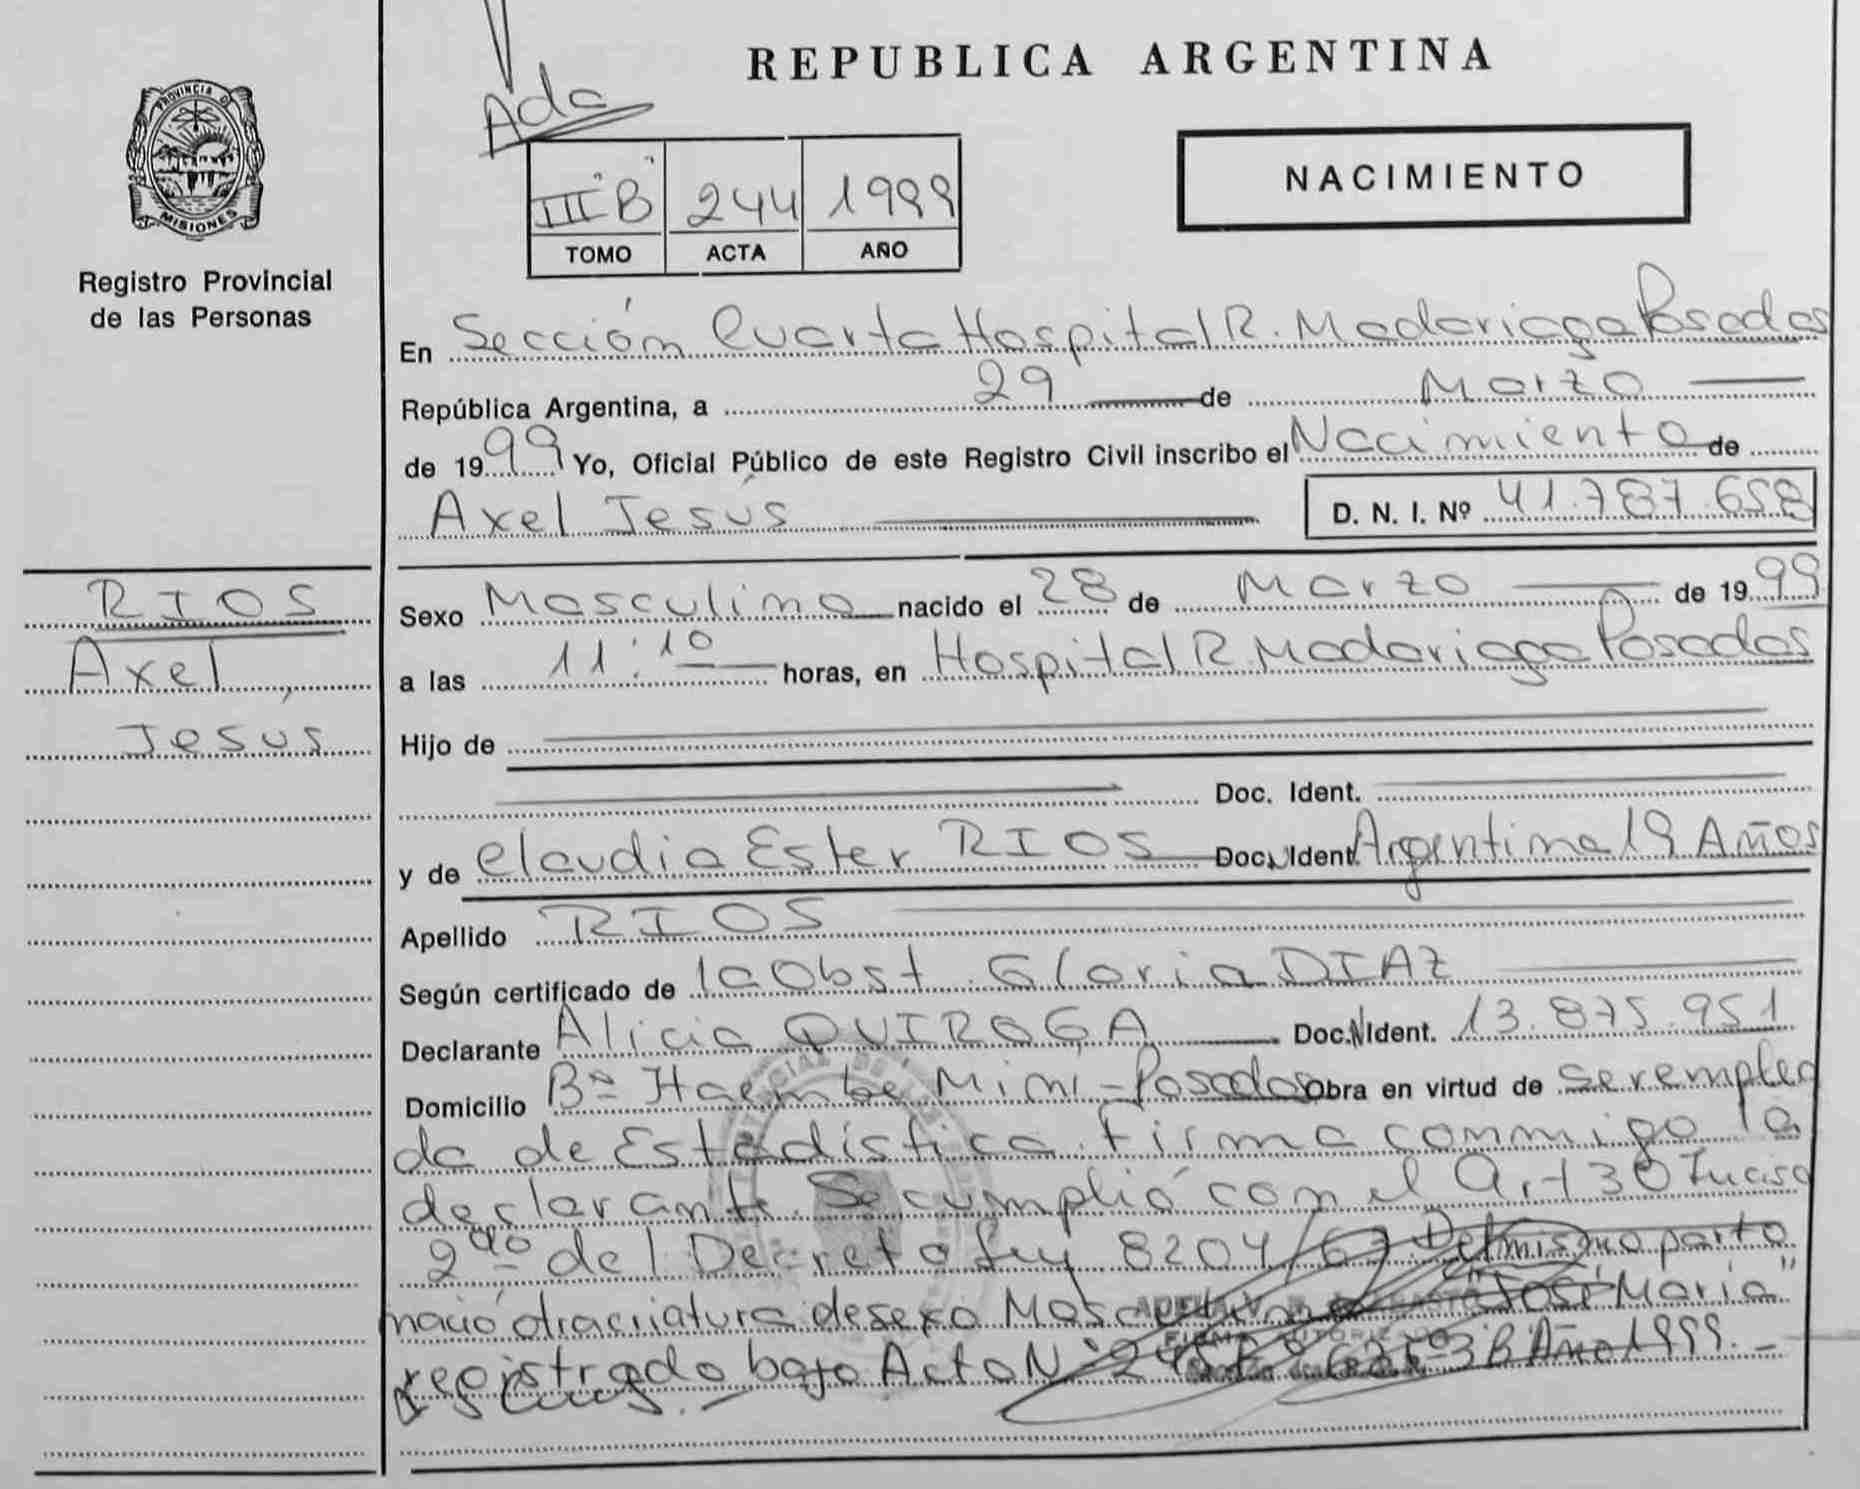 REPUBLICA ARGENTINA
Ada
PROVINCIA DE
MISIONES
Registro Provincial
de las Personas
NACIMIENTO
III "B" 244 1999
TOMO ACTA AÑO
En Sección Cuarta Hospital R. Madariaga Posadas
República Argentina, a 29 de Marzo
de 1999 Yo, Oficial Público de este Registro Civil inscribo el Nacimiento de
Axel Jesús D. N. I. Nº 41.787.658
RIOS
Axel,
Jesus
Sexo Masculino nacido el 28 de Marzo de 1999
a las 11:10 horas, en Hospital R. Madariaga Posadas
Hijo de
Doc. Ident.
y de Claudia Ester RIOS Doc. N Ident. Argentina 19 Años
Apellido RIOS
Según certificado de la Obst. Gloria DIAZ
Declarante Alicia QUIROGA Doc. N Ident. 13.875.951
Domicilio Bº Itaembe Mini - Posadas Obra en virtud de ser emplea
da de Estadística. Firma conmigo la
declarante. Se cumplió con el Art 30 Inciso
2do del Decreto Ley 8204/63. Del mismo parto
nació otra criatura de sexo Masculino "José María"
registrado bajo Acta Nº 245 Tº 3B Año 1999.-
FIRMA AUTORIZADA